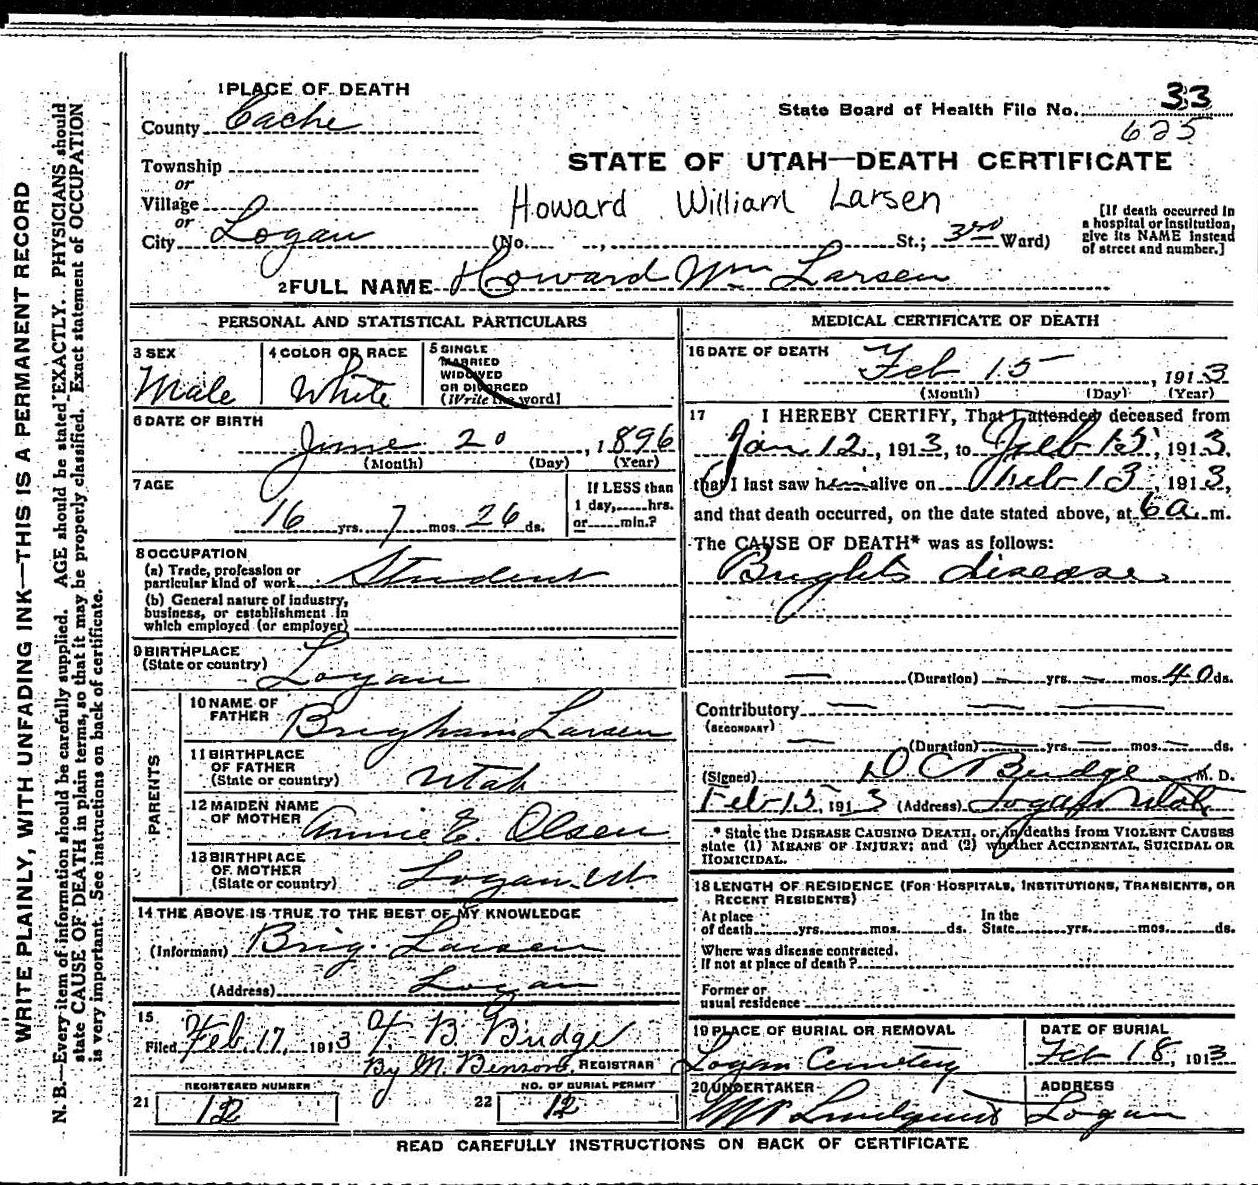 WRITE PLAINLY, WITH UNFADING INK—THIS IS A PERMANENT RECORD
N. B.—Every item of information should be carefully supplied. AGE should be stated EXACTLY. PHYSICIANS should
state CAUSE OF DEATH in plain terms, so that it may be properly classified. Exact statement of OCCUPATION
is very important. See instructions on back of certificate.
1 PLACE OF DEATH
County Cache
Township
or
Village
or
City Logan
State Board of Health File No. 33
625
STATE OF UTAH—DEATH CERTIFICATE
Howard William Larsen
(No. , St.; 3rd Ward)
[If death occurred in
a hospital or institution,
give its NAME instead
of street and number.]
2 FULL NAME Howard Wm Larsen
PERSONAL AND STATISTICAL PARTICULARS
3 SEX
Male
4 COLOR OR RACE
White
5 SINGLE
MARRIED
WIDOWED
OR DIVORCED
(Write the word)
6 DATE OF BIRTH
June 20, 1896
(Month) (Day) (Year)
7 AGE
16 yrs. 7 mos. 26 ds.
If LESS than
1 day, hrs.
or min.?
8 OCCUPATION
(a) Trade, profession or
particular kind of work Student
(b) General nature of industry,
business, or establishment in
which employed (or employer)
9 BIRTHPLACE
(State or country)
Logan
PARENTS
10 NAME OF
FATHER
Brigham Larsen
11 BIRTHPLACE
OF FATHER
(State or country)
Utah
12 MAIDEN NAME
OF MOTHER
Annie E. Olsen
13 BIRTHPLACE
OF MOTHER
(State or country)
Logan Ut
14 THE ABOVE IS TRUE TO THE BEST OF MY KNOWLEDGE
(Informant) Brig. Larsen
(Address) Logan
15
Filed Feb. 17, 1913 F. B. Budge
By M. Benson, REGISTRAR
REGISTERED NUMBER
21 12
NO. OF BURIAL PERMIT
22 12
MEDICAL CERTIFICATE OF DEATH
16 DATE OF DEATH
Feb 15, 1913
(Month) (Day) (Year)
17 I HEREBY CERTIFY, That I attended deceased from
Jan 12, 1913, to Feb 15, 1913,
that I last saw him alive on Feb 13, 1913,
and that death occurred, on the date stated above, at 6 a. m.
The CAUSE OF DEATH* was as follows:
Bright's disease
(Duration) yrs. mos. 40 ds.
Contributory
(SECONDARY)
(Duration) yrs. mos. ds.
(Signed) D C Budge M. D.
Feb 15, 1913 (Address) Logan Utah
* State the DISEASE CAUSING DEATH, or, in deaths from VIOLENT CAUSES
state (1) MEANS OF INJURY; and (2) whether ACCIDENTAL, SUICIDAL OR
HOMICIDAL.
18 LENGTH OF RESIDENCE (FOR HOSPITALS, INSTITUTIONS, TRANSIENTS, OR
RECENT RESIDENTS)
At place
of death yrs. mos. ds.
In the
State yrs. mos. ds.
Where was disease contracted.
If not at place of death?
Former or
usual residence
19 PLACE OF BURIAL OR REMOVAL
Logan Cemetery
DATE OF BURIAL
Feb 18, 1913
20 UNDERTAKER
Lundquist
ADDRESS
Logan
READ CAREFULLY INSTRUCTIONS ON BACK OF CERTIFICATE